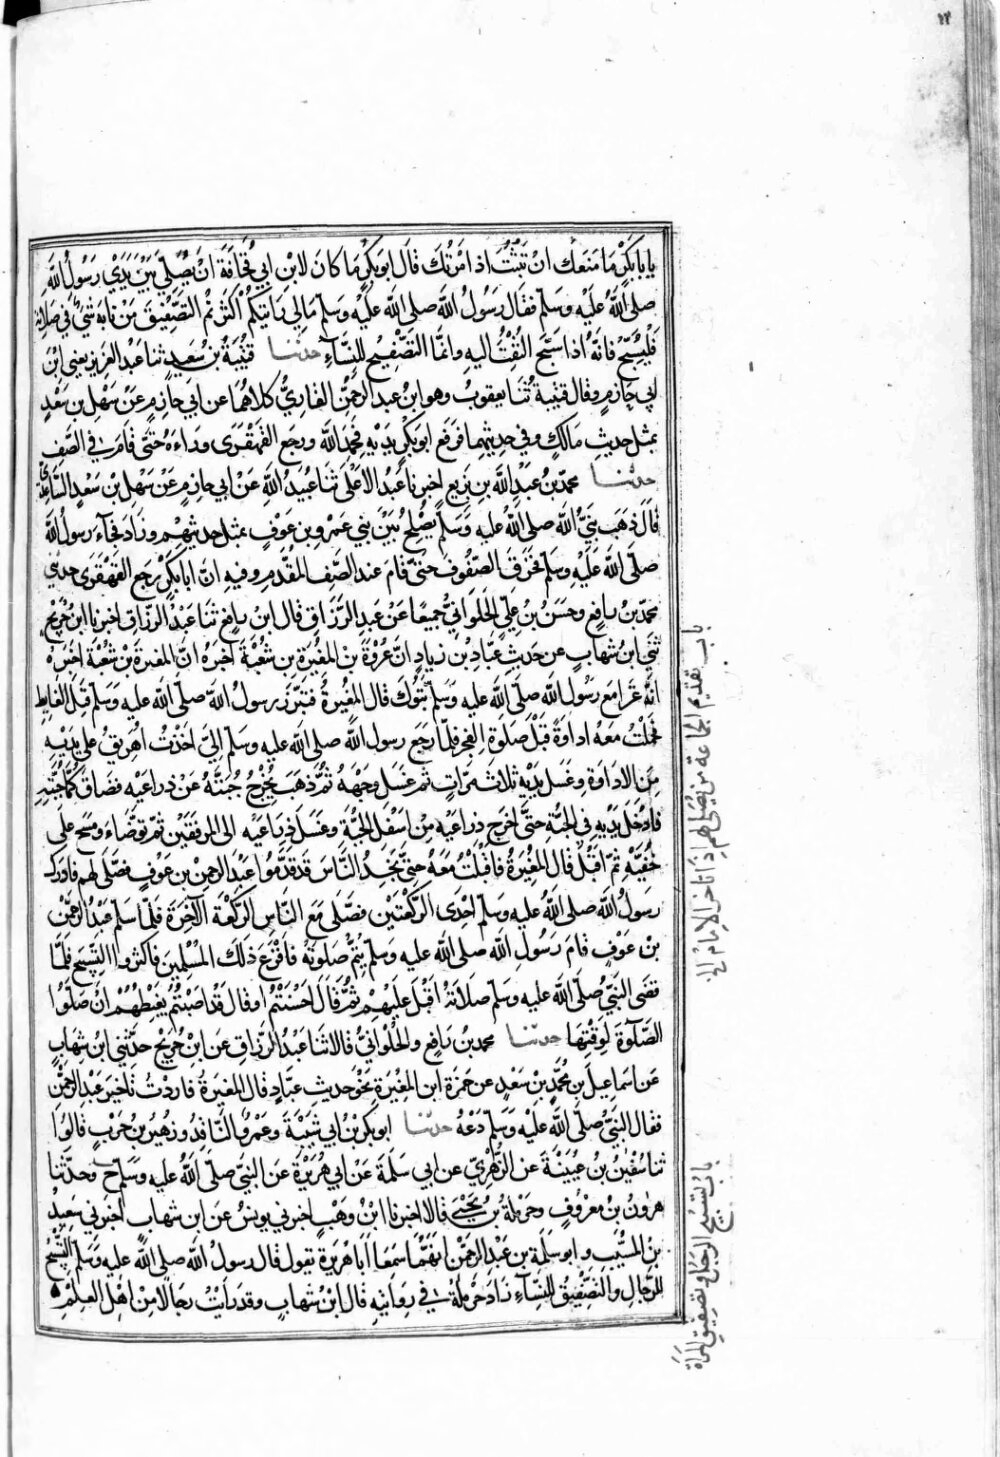 يا با بكر ما منعك ان تثبت اذ امرتك قال ابو بكر ما كان لابن ابي قحافة ان يصلي بين يدي رسول الله
صلى الله عليه وسلم فقال رسول الله صلى الله عليه وسلم مالي رايتكم اكثرتم التصفيق من نابه شئ في صلاته
فليسبح فانه اذا سبح التفت اليه وانما التصفيح للنسآء حدثنا قتيبة بن سعيد ثنا عبد العزيز يعني ابن
ابي حازم وقال قتيبة ثنا يعقوب وهو ابن عبد الرحمن القاري كلاهما عن ابي حازم عن سهل بن سعد
بمثل حديث مالك وفي حديثهما فرفع ابو بكر يديه فحمد الله ورجع القهقرى وراءه حتى قام في الصف
حدثنا محمد بن عبد الله بن بزيع اخبرنا عبد الاعلى ثنا عبيد الله عن ابي حازم عن سهل بن سعد الساعدي
قال ذهب نبي الله صلى الله عليه وسلم يصلح بين بني عمرو بن عوف بمثل حديثهم وزاد فجآء رسول الله
صلى الله عليه وسلم فخرق الصفوف حتى قام عند الصف المقدم وفيه ان ابا بكر رجع القهقرى حدثني
محمد بن رافع وحسن بن علي الحلواني جميعا عن عبد الرزاق قال ابن رافع ثنا عبد الرزاق اخبرنا ابن جريج
ثني ابن شهاب عن حديث عباد بن زياد ان عروة بن المغيرة بن شعبة اخبره ان المغيرة بن شعبة اخبره
انه غزا مع رسول الله صلى الله عليه وسلم تبوك قال المغيرة فتبرز رسول الله صلى الله عليه وسلم قبل الغايط
فحملت معه اداوة قبل صلوة الفجر فلما رجع رسول الله صلى الله عليه وسلم الي اخذت اهريق على يديه
من الاداوة وغسل يديه ثلاث مرات ثم غسل وجهه ثم ذهب يخرج جبته عن ذراعيه فضاق كما جبته
فادخل يديه في الجبة حتى اخرج ذراعيه من اسفل الجبة وغسل ذراعيه الى المرفقين ثم توضاء ومسح على
خفيه ثم اقبل قال المغيرة فاقبلت معه حتى نجد الناس قد قدموا عبد الرحمن بن عوف فصلى لهم فادرك
رسول الله صلى الله عليه وسلم احدى الركعتين فصلى مع الناس الركعة الآخرة فلما سلم عبد الرحمن
بن عوف قام رسول الله صلى الله عليه وسلم يتم صلوته فافزع ذلك المسلمين فاكثروا التسبيح فلما
قضى النبي صلى الله عليه وسلم صلاته اقبل عليهم ثم قال احسنتم او قال قد اصبتم يغبطهم ان صلوا
الصلوة لوقتها حدثنا محمد بن رافع والحلواني قالا ثنا عبد الرزاق عن ابن جريج حدثني ابن شهاب
عن اسماعيل بن محمد بن سعد عن حمزة ابن المغيرة نحو حديث عباد قال المغيرة فاردت تاخير عبد الرحمن
فقال النبي صلى الله عليه وسلم دعه حدثنا ابو بكر بن ابي شيبة وعمرو الناقد وزهير بن حرب قالوا
ثنا سفين بن عيينة عن الزهري عن ابي سلمة عن ابي هريرة عن النبي صلى الله عليه وسلم ح وحدثنا
هرون بن معروف وحرملة بن يحيى قالا اخبرنا ابن وهب اخبرني يونس عن ابن شهاب اخبرني سعيد
بن المسيب وابو سلمة بن عبد الرحمن انهما سمعا ابا هريرة يقول قال رسول الله صلى الله عليه وسلم التسبيح
للرجال والتصفيق للنسآء زاد حرملة في روايته قال ابن شهاب وقد رايت رجالا من اهل العلم
باب تقديم الجماعة من يصلى لهم اذا تاخر الامام الخ
باب تسبيح الرجل وتصفيق المراة